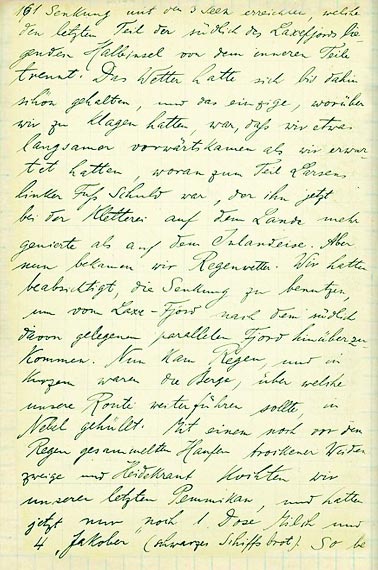 161 Senkung mit den 3 Seen erreichen, welche
den letzten Teil der südlich des Laxefjords lie-
genden Halbinsel von dem inneren Teile
trennt. Das Wetter hatte sich bis dahin
schön gehalten, und das einzige, worüber
wir zu klagen hatten, war, daß wir etwas
langsamer vorwärtskamen als wir erwar-
tet hatten, woran zum Teil Larsens
linker Fuß Schuld war, der ihn jetzt
bei der Kletterei auf dem Lande mehr
genierte als auf dem Inlandeise. Aber
nun bekamen wir Regenwetter. Wir hatten
beabsichtigt, die Senkung zu benutzen,
um vom Laxe-Fjord nach dem südlich
davon gelegenen parallelen Fjord hinüberzu
kommen. Nun kam Regen, und in
kurzem waren die Berge, über welche
unsere Route weiterführen sollte, in
Nebel gehüllt. Mit einem noch vor dem
Regen gesammelten Haufen trockener Weiden
zweige und Heidekraut kochten wir
unseren letzten Pemmikan, und hatten
jetzt nur noch 1 Dose Milch und
4 „Jakober" (schwarzes Schiffsbrot). So be